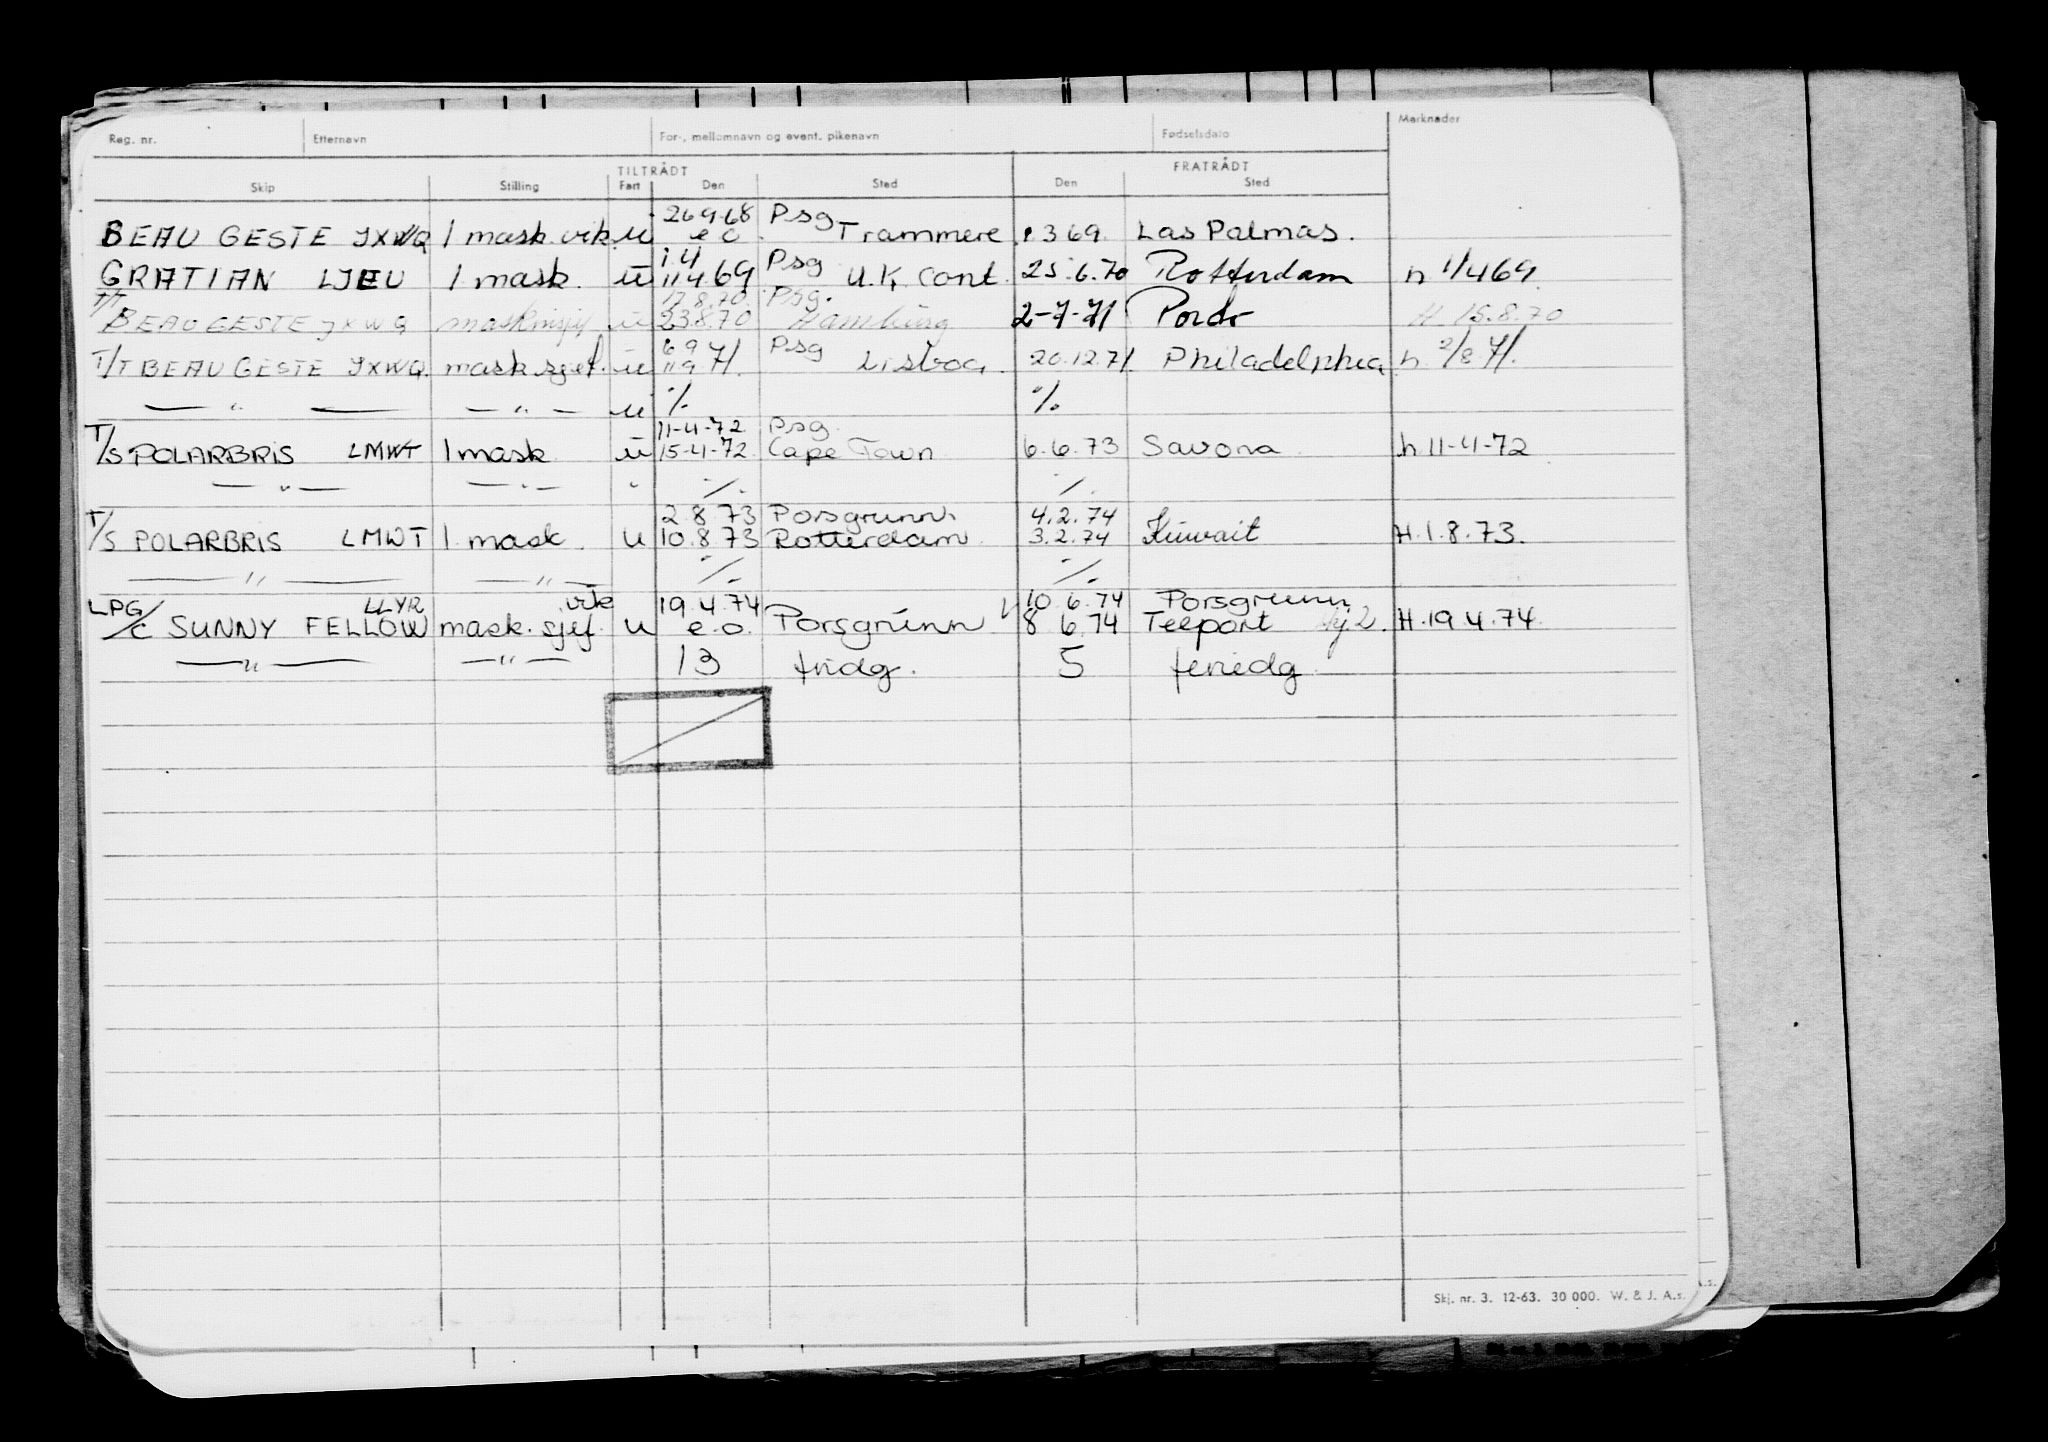 Reg. nr. Etternavn For-, mellomnavn og event. pikenavn Fødselsdato Merknader
TILTRÅDT FRATRÅDT
Skip Stilling Fart Den Sted Den Sted
26 9 68 Psg
BEAU GESTE JXWQ 1 mask. vik. u e o. Trammere 1 3 69. Las Palmas.
1.4 Psg
GRATIAN LJEU 1 mask. u 11 4 69 U.K. Cont. 25.6.70 Rotterdam h 1/4 69.
T/T 17.8.70. Psg.
BEAU GESTE JXWQ maskinsjef u 23.8.70 Hamburg 2-7-71 H. 15.8.70
6 9 Psg
T/T BEAU GESTE JXWQ. mask sjef. u 11 9 71. Lisboa. 20.12.71. Philadelphia h. 2/8.71.
— " — — " — u %. %.
11-4-72 Psg.
T/S POLARBRIS LMWT 1 mask u 15-4-72. Cape Town 6.6.73 Savona. h 11-4-72
— " — — " — " %. %.
2.8.73 Porsgrunn 4.2.74
T/S POLARBRIS LMWT 1. mask. u 10.8.73 Rotterdam. 3.2.74 Kuwait H.1.8.73.
— " — — " — %. %.
LPG/C LLYR vik 19.4.74 10.6.74 Porsgrunn
SUNNY FELLOW mask. sjef. u e.o. Porsgrunn 8 6.74 Teeport H.19.4.74.
— " — — " — 13 fridg. 5 feriedg.
Skj. nr. 3. 12-63. 30 000. W. & J. A.s.